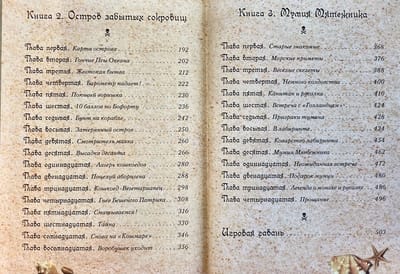 Книга 2. Остров забытых сокровищ
Глава первая. Карта острова 192
Глава вторая. Гончие Псы Океана 202
Глава третья. Жестокая битва 212
Глава четвёртая. Барометр падает! 222
Глава пятая. Поющий горшок 230
Глава шестая. 10 баллов по Бофорту 236
Глава седьмая. Бунт на корабле 242
Глава восьмая. Затерянный остров 250
Глава девятая. Смотрители маяка 260
Глава десятая. Высадка десанта 266
Глава одиннадцатая. Лагерь кошкоедов 280
Глава двенадцатая. Поцелуй аборигена 288
Глава тринадцатая. Кошкоед-Вегетарианец 298
Глава четырнадцатая. Гнев Бешеного Патрика 308
Глава пятнадцатая. Смываемся! 316
Глава шестнадцатая. Тайна 330
Глава семнадцатая. Снова на «Кошмаре» 346
Глава восемнадцатая. Воробушек уходит 356
Книга 3. Мумия Мятежника
Глава первая. Старые знакомые 368
Глава вторая. Морские приметы 376
Глава третья. Веские секреты 388
Глава четвёртая. Немного колдовства 400
Глава пятая. Капитан и русалки 410
Глава шестая. Встреча с «Голландцем» 424
Глава седьмая. Призраки тумана 426
Глава восьмая. В лабиринте 434
Глава девятая. Коварство лабиринта 454
Глава десятая. Мумия Мятежника 462
Глава одиннадцатая. Неожиданная встреча 472
Глава двенадцатая. Подарок мумии 480
Глава тринадцатая. Легенда о монахе и русалке 486
Глава четырнадцатая. Прощание 496
Игровая гавань 503